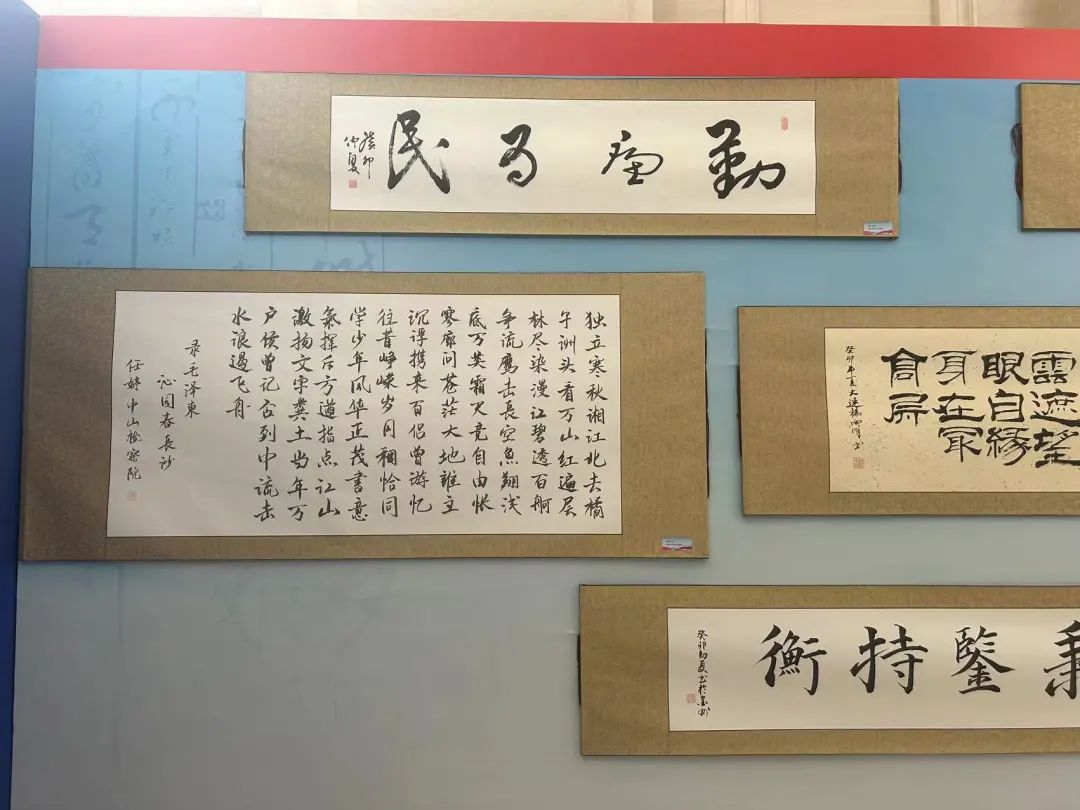 勤廉为民
癸卯
仲夏
独立寒秋湘江北去橘
子洲头看万山红遍层
林尽染漫江碧透百舸
争流鹰击長空魚翔浅
底万类霜天竞自由怅
寥廓问苍茫大地誰主
沉浮携来百侣曾游忆
往昔峥嵘岁月稠恰同
学少年风华正茂書意
氣挥斥方遒指点江山
激扬文字粪土当年万
户侯曾记否到中流击
水浪遏飞舟
录毛泽東
沁园春長沙
任婷中山检察院
雲遮望
眼自缘
身在最
高层
癸卯年夏大连
秉鋻持衡
癸卯初夏书於金州